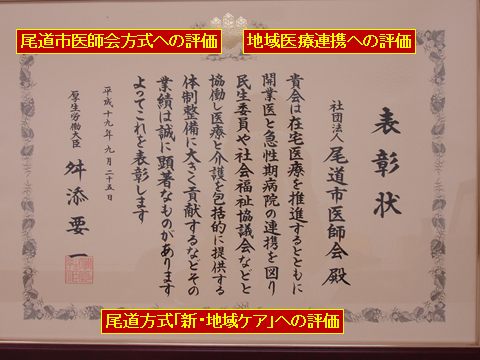 尾道市医師会方式への評価
地域医療連携への評価
表彰状
社団法人 尾道市医師会 殿
貴会は在宅医療を推進するとともに
開業医と急性期病院の連携を図り
民生委員や社会福祉協議会などと
協働し医療と介護を包括的に提供する
体制整備に大きく貢献するなどその
業績は誠に顕著なものがあります
よってこれを表彰します
平成十九年 九月二十五日
厚生労働大臣 舛添要一
尾道方式「新・地域ケア」への評価